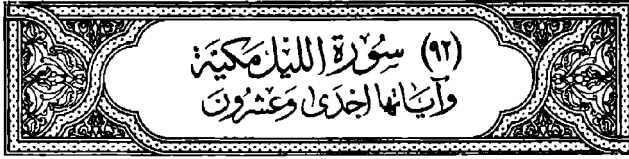 (٩٢) سُورَةُ اللَّيْلِ مَكِّيَّة
وَآيَاتُهَا إِحْدَى وَعِشْرُونَ